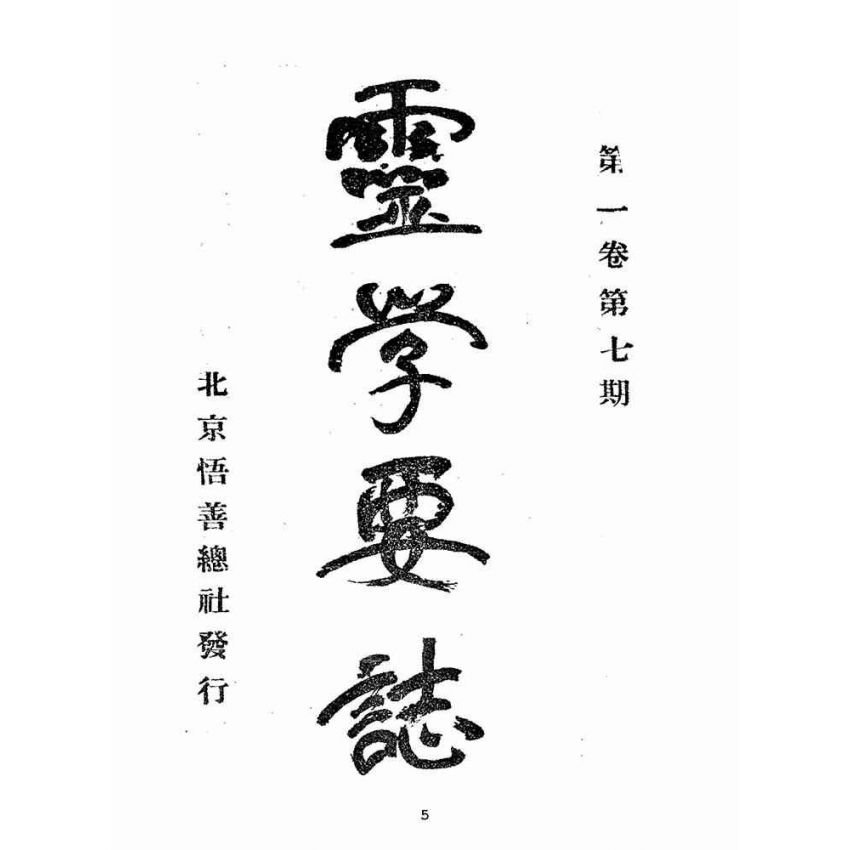 第一卷第七期
靈学要誌
北京悟善總社發行
5